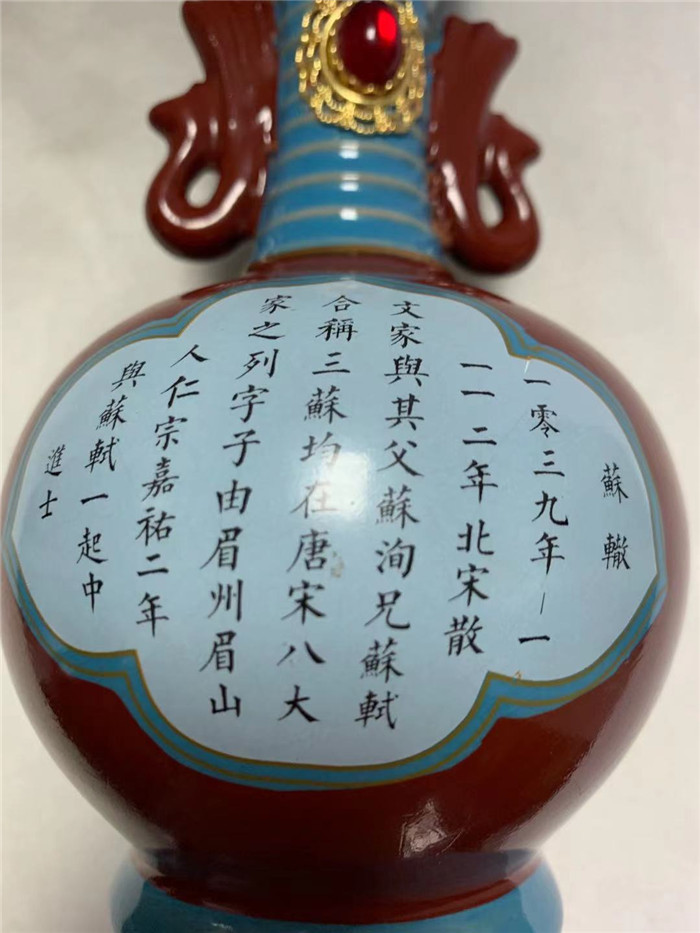 蘇轍
一零三九年–一
一一二年北宋散
文家與其父蘇洵兄蘇軾
合稱三蘇均在唐宋八大
家之列字子由眉州眉山
人仁宗嘉祐二年
與蘇軾一起中
進士